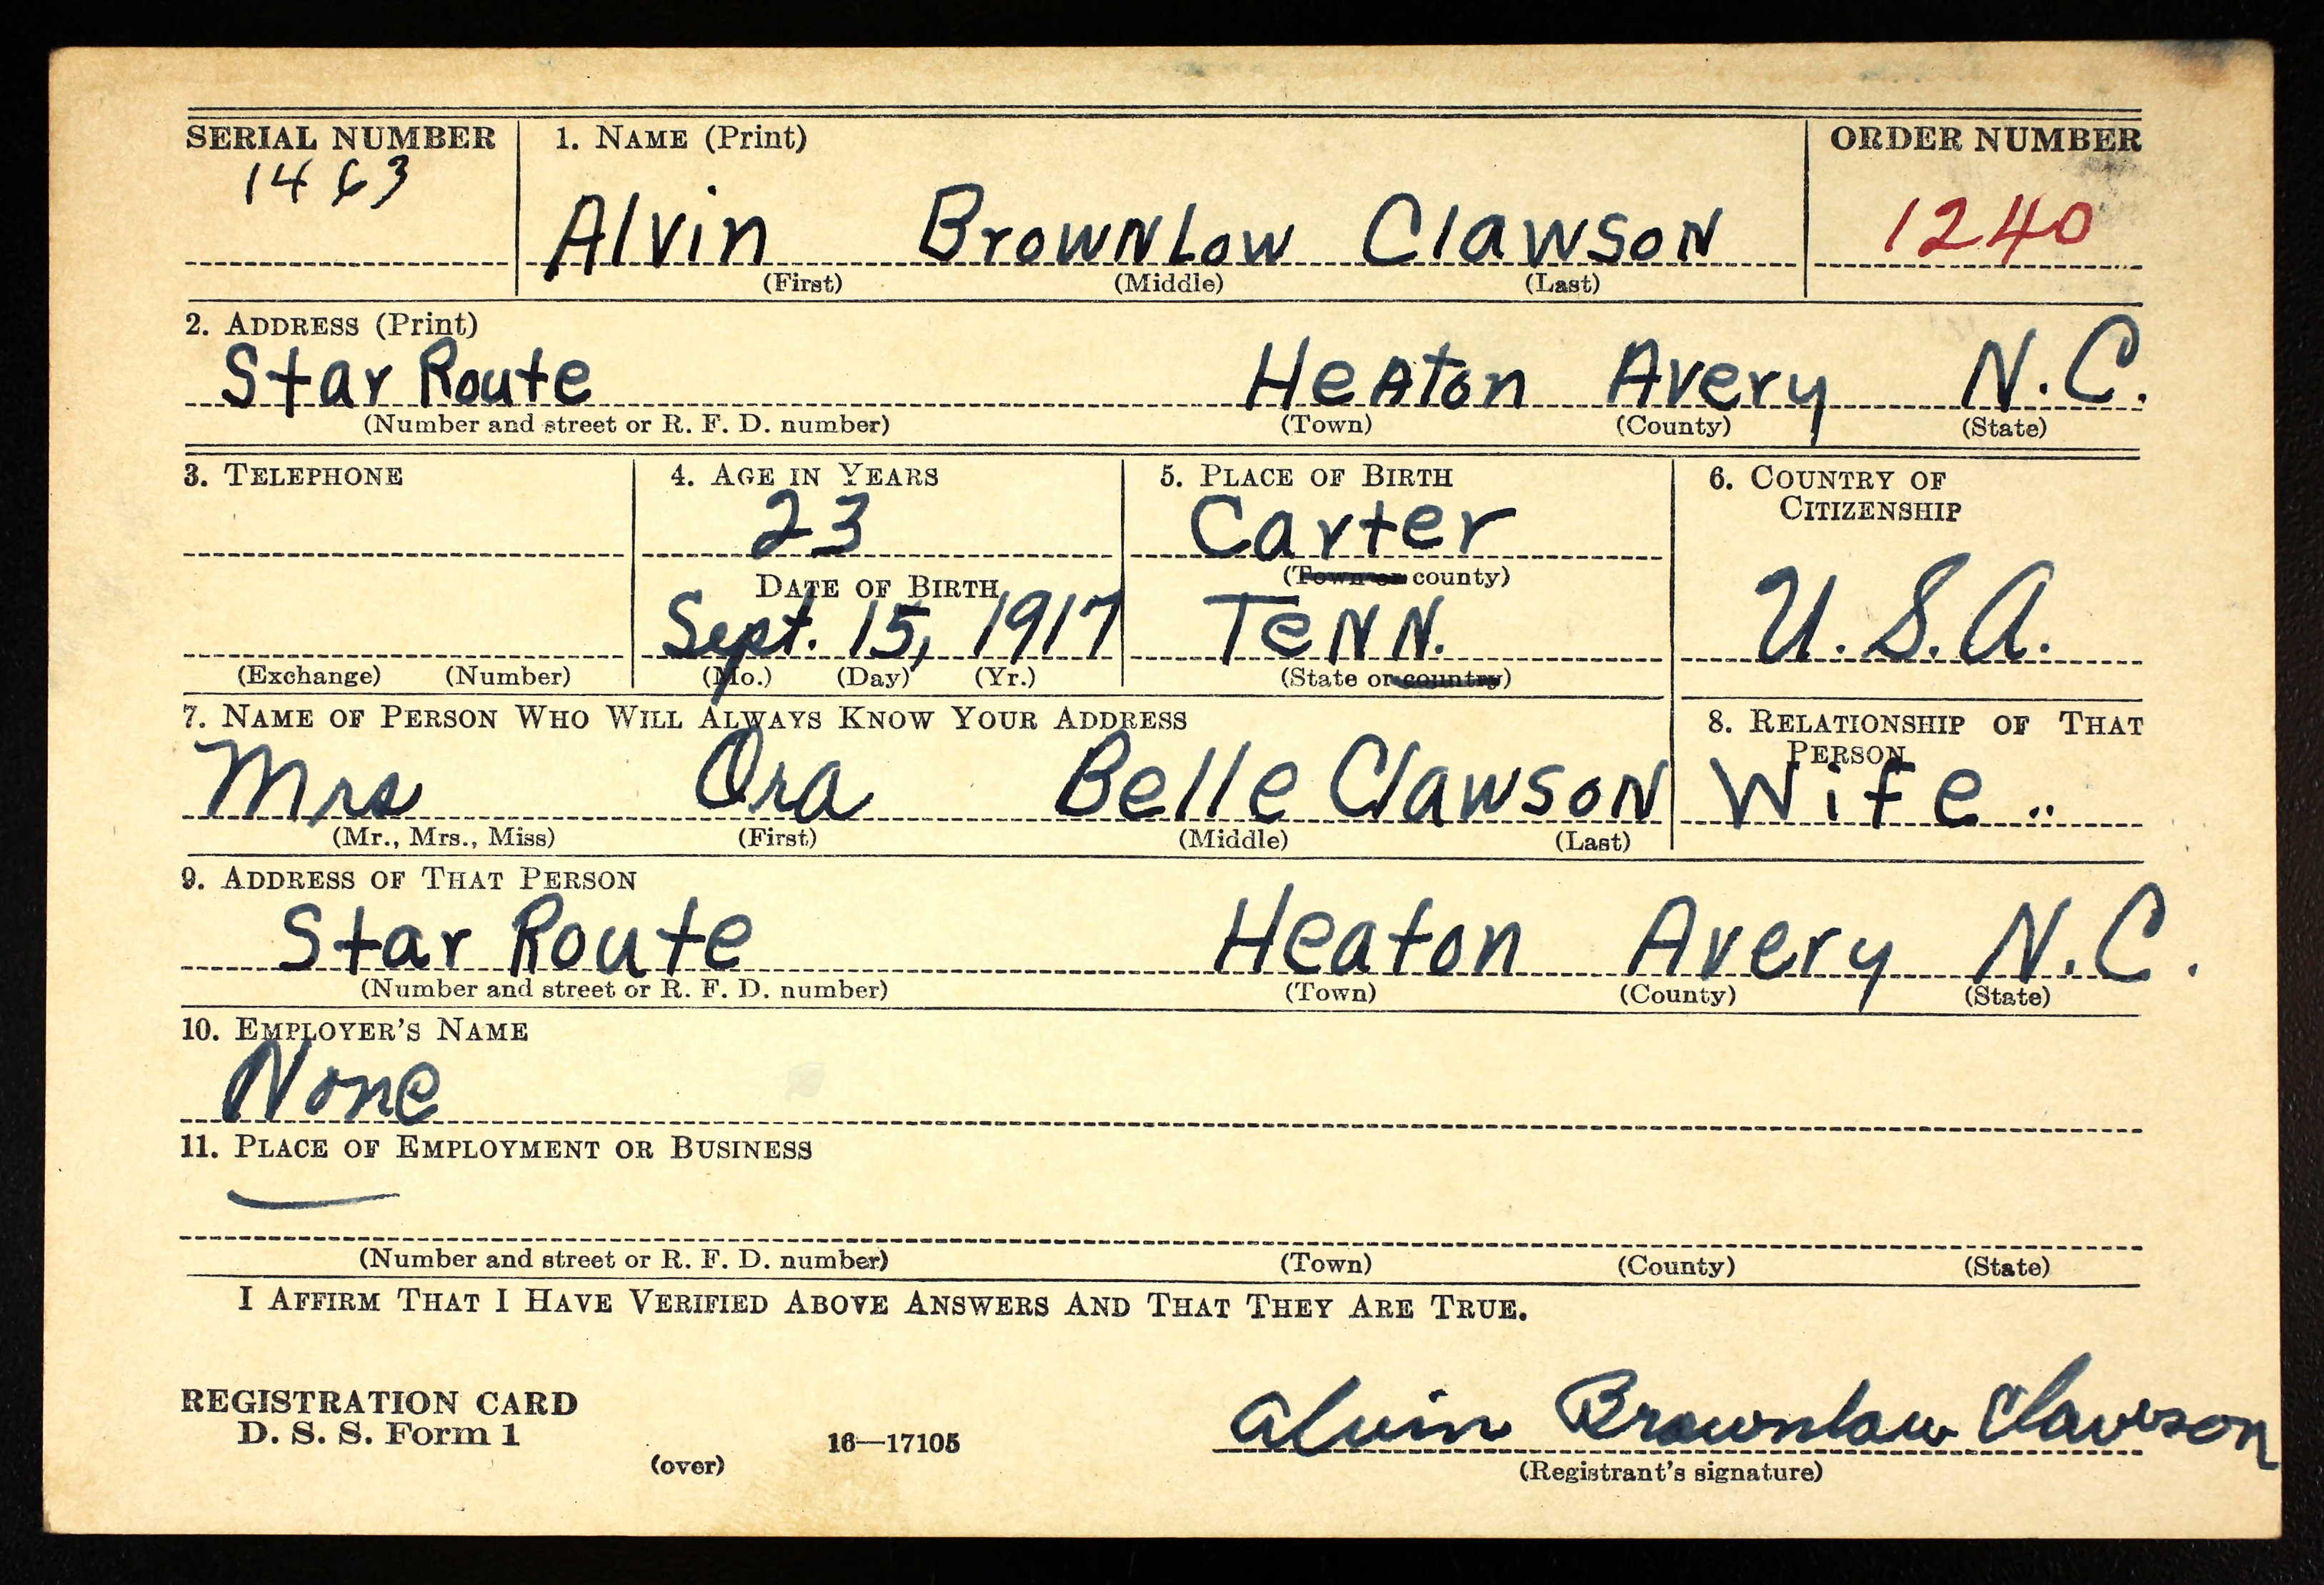 SERIAL NUMBER 1. NAME (Print) ORDER NUMBER
1463
Alvin BrownLow Clawson 1240
(First) (Middle) (Last)
2. ADDRESS (Print)
Star Route Heaton Avery N.C.
(Number and street or R. F. D. number) (Town) (County) (State)
3. TELEPHONE 4. AGE IN YEARS 5. PLACE OF BIRTH 6. COUNTRY OF
CITIZENSHIP
23 Carter
(Town or county)
DATE OF BIRTH
Sept. 15, 1917 TENN. U.S.A.
(Exchange) (Number) (Mo.) (Day) (Yr.) (State or country)
7. NAME OF PERSON WHO WILL ALWAYS KNOW YOUR ADDRESS 8. RELATIONSHIP OF THAT
PERSON
Mrs Ora Belle Clawson Wife..
(Mr., Mrs., Miss) (First) (Middle) (Last)
9. ADDRESS OF THAT PERSON
Star Route Heaton Avery N.C.
(Number and street or R. F. D. number) (Town) (County) (State)
10. EMPLOYER'S NAME
None
11. PLACE OF EMPLOYMENT OR BUSINESS
—
(Number and street or R. F. D. number) (Town) (County) (State)
I AFFIRM THAT I HAVE VERIFIED ABOVE ANSWERS AND THAT THEY ARE TRUE.
REGISTRATION CARD
D. S. S. Form 1 16—17105 Alvin Brownlow Clawson
(over) (Registrant's signature)